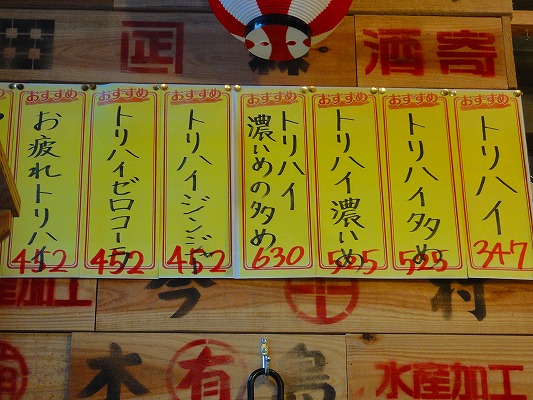 酒寄
おすすめ
トリハイ
347
おすすめ
トリハイ多め
525
おすすめ
トリハイ濃いめ
505
おすすめ
トリハイ
濃いめの多め
630
おすすめ
トリハイジンジャー
452
おすすめ
トリハイゼロコーラ
452
おすすめ
お疲れトリハイ
452
産加工
今
村
木
有
水産加工